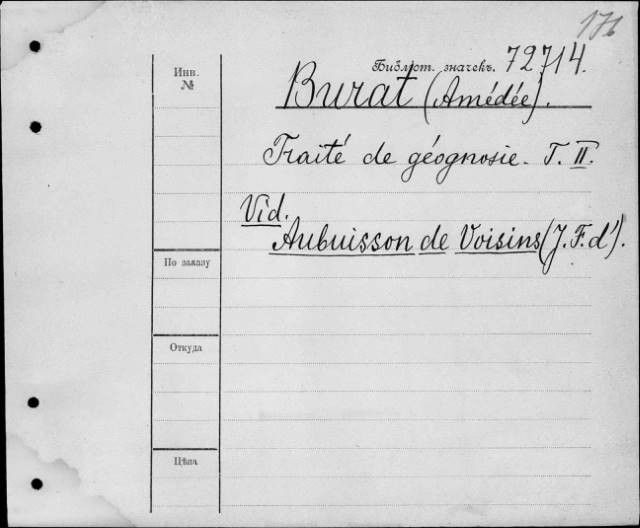 171
Библіот. значекъ. 72714.
Инв.
№
Burat (Amédée).
Traité de géognosie. T. II.
Vid.
Aubuisson de Voisins (J. F. d').
По заказу
Откуда
Цѣна